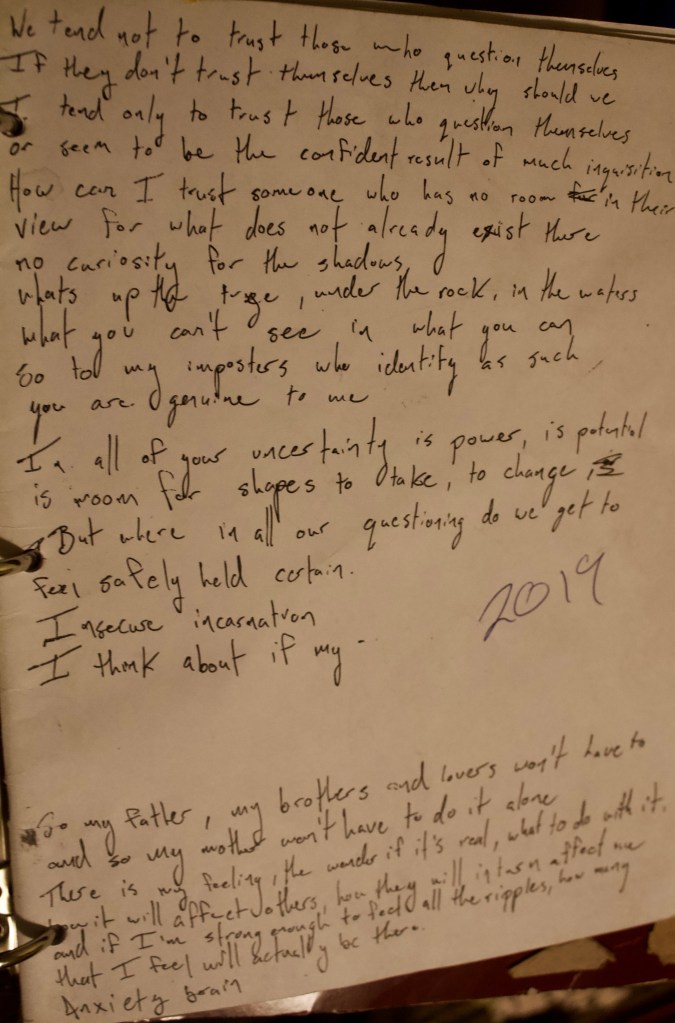 We tend not to trust those who question themselves
If they don't trust themselves then why should we
I tend only to trust those who question themselves
or seem to be the confident result of much inquisition
How can I trust someone who has no room in their
view for what does not already exist there
no curiosity for the shadows
whats up the tree, under the rock, in the waters
what you can't see in what you can
So to my imposters who identify as such
you are genuine to me
In all of your uncertainty is power, is potential
is room for shapes to take, to change,
But where in all our questioning do we get to
feel safely held certain.
Insecure incarnation
I think about if my
2019
So my father, my brothers and lovers won't have to
and so my mother won't have to do it alone
There is my feeling, the wonder if it's real, what to do with it.
how it will affect others, how they will in turn affect me
and if I'm strong enough to feel all the ripples, how many
that I feel will actually be there.
Anxiety brain